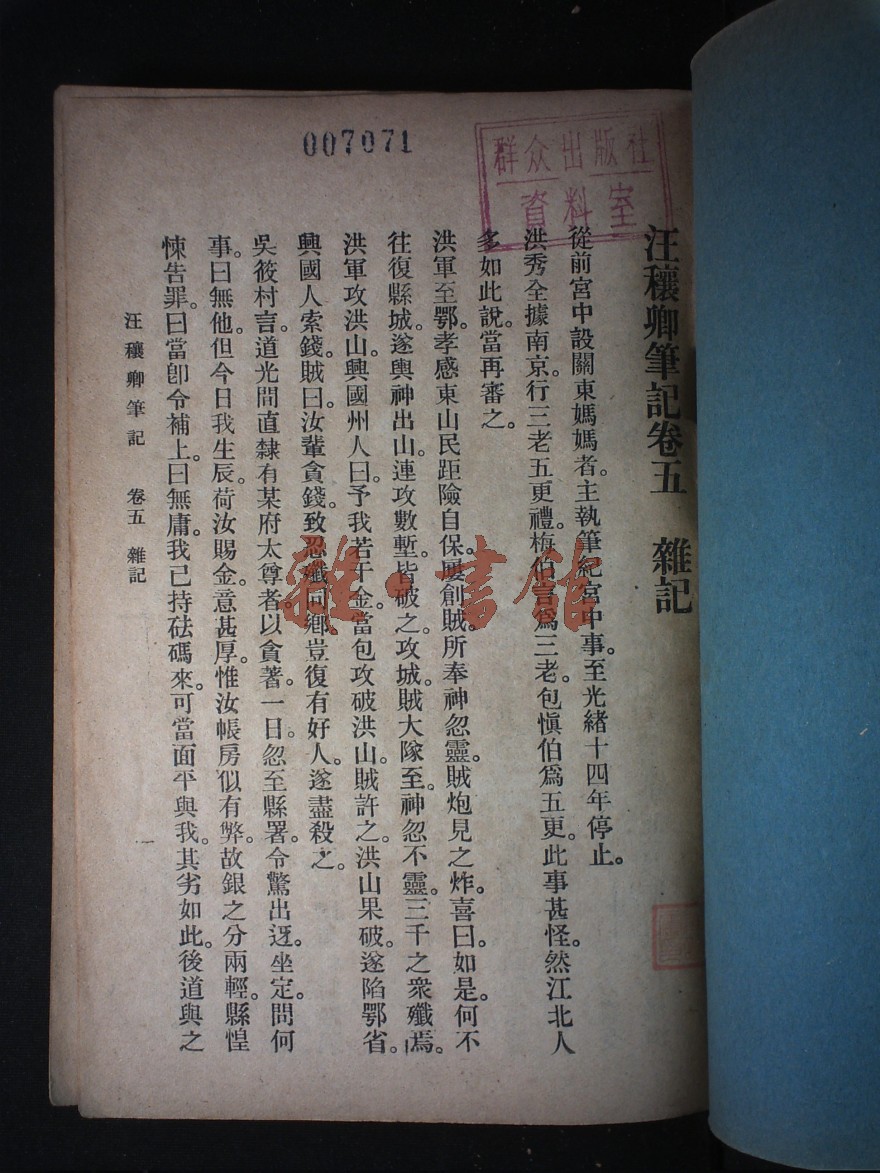 007071
群众出版社
資料室
汪穰卿筆記卷五　雜記
從前宮中設關東媽媽者。主執筆紀宮中事。至光緒十四年停止。
洪秀全據南京。行三老五更禮。梅伯言爲三老。包愼伯爲五更。此事甚怪。然江北人
多如此說。當再審之。
洪軍至鄂。孝感東山民距險自保。屢創賊。所奉神忽靈。賊炮見之炸。喜曰。如是。何不
往復縣城。遂輿神出山。連攻數塹。皆破之。攻城。賊大隊至。神忽不靈。三千之衆殲焉。
洪軍攻洪山。興國州人曰。予我若干金。當包攻破洪山。賊許之。洪山果破。遂陷鄂省。
興國人索錢。賊曰。汝輩貪錢。致忍殲同鄉。豈復有好人。遂盡殺之。
吳筱村言。道光間直隸有某府太尊者。以貪著。一日。忽至縣署。令驚出迓。坐定。問何
事。曰無他。但今日我生辰。荷汝賜金。意甚厚。惟汝帳房似有弊。故銀之分兩輕。縣惶
悚告罪。曰當卽令補上。曰無庸。我已持砝碼來。可當面平與我。其劣如此。後道與之
汪穰卿筆記　卷五　雜記
一
雜·書館